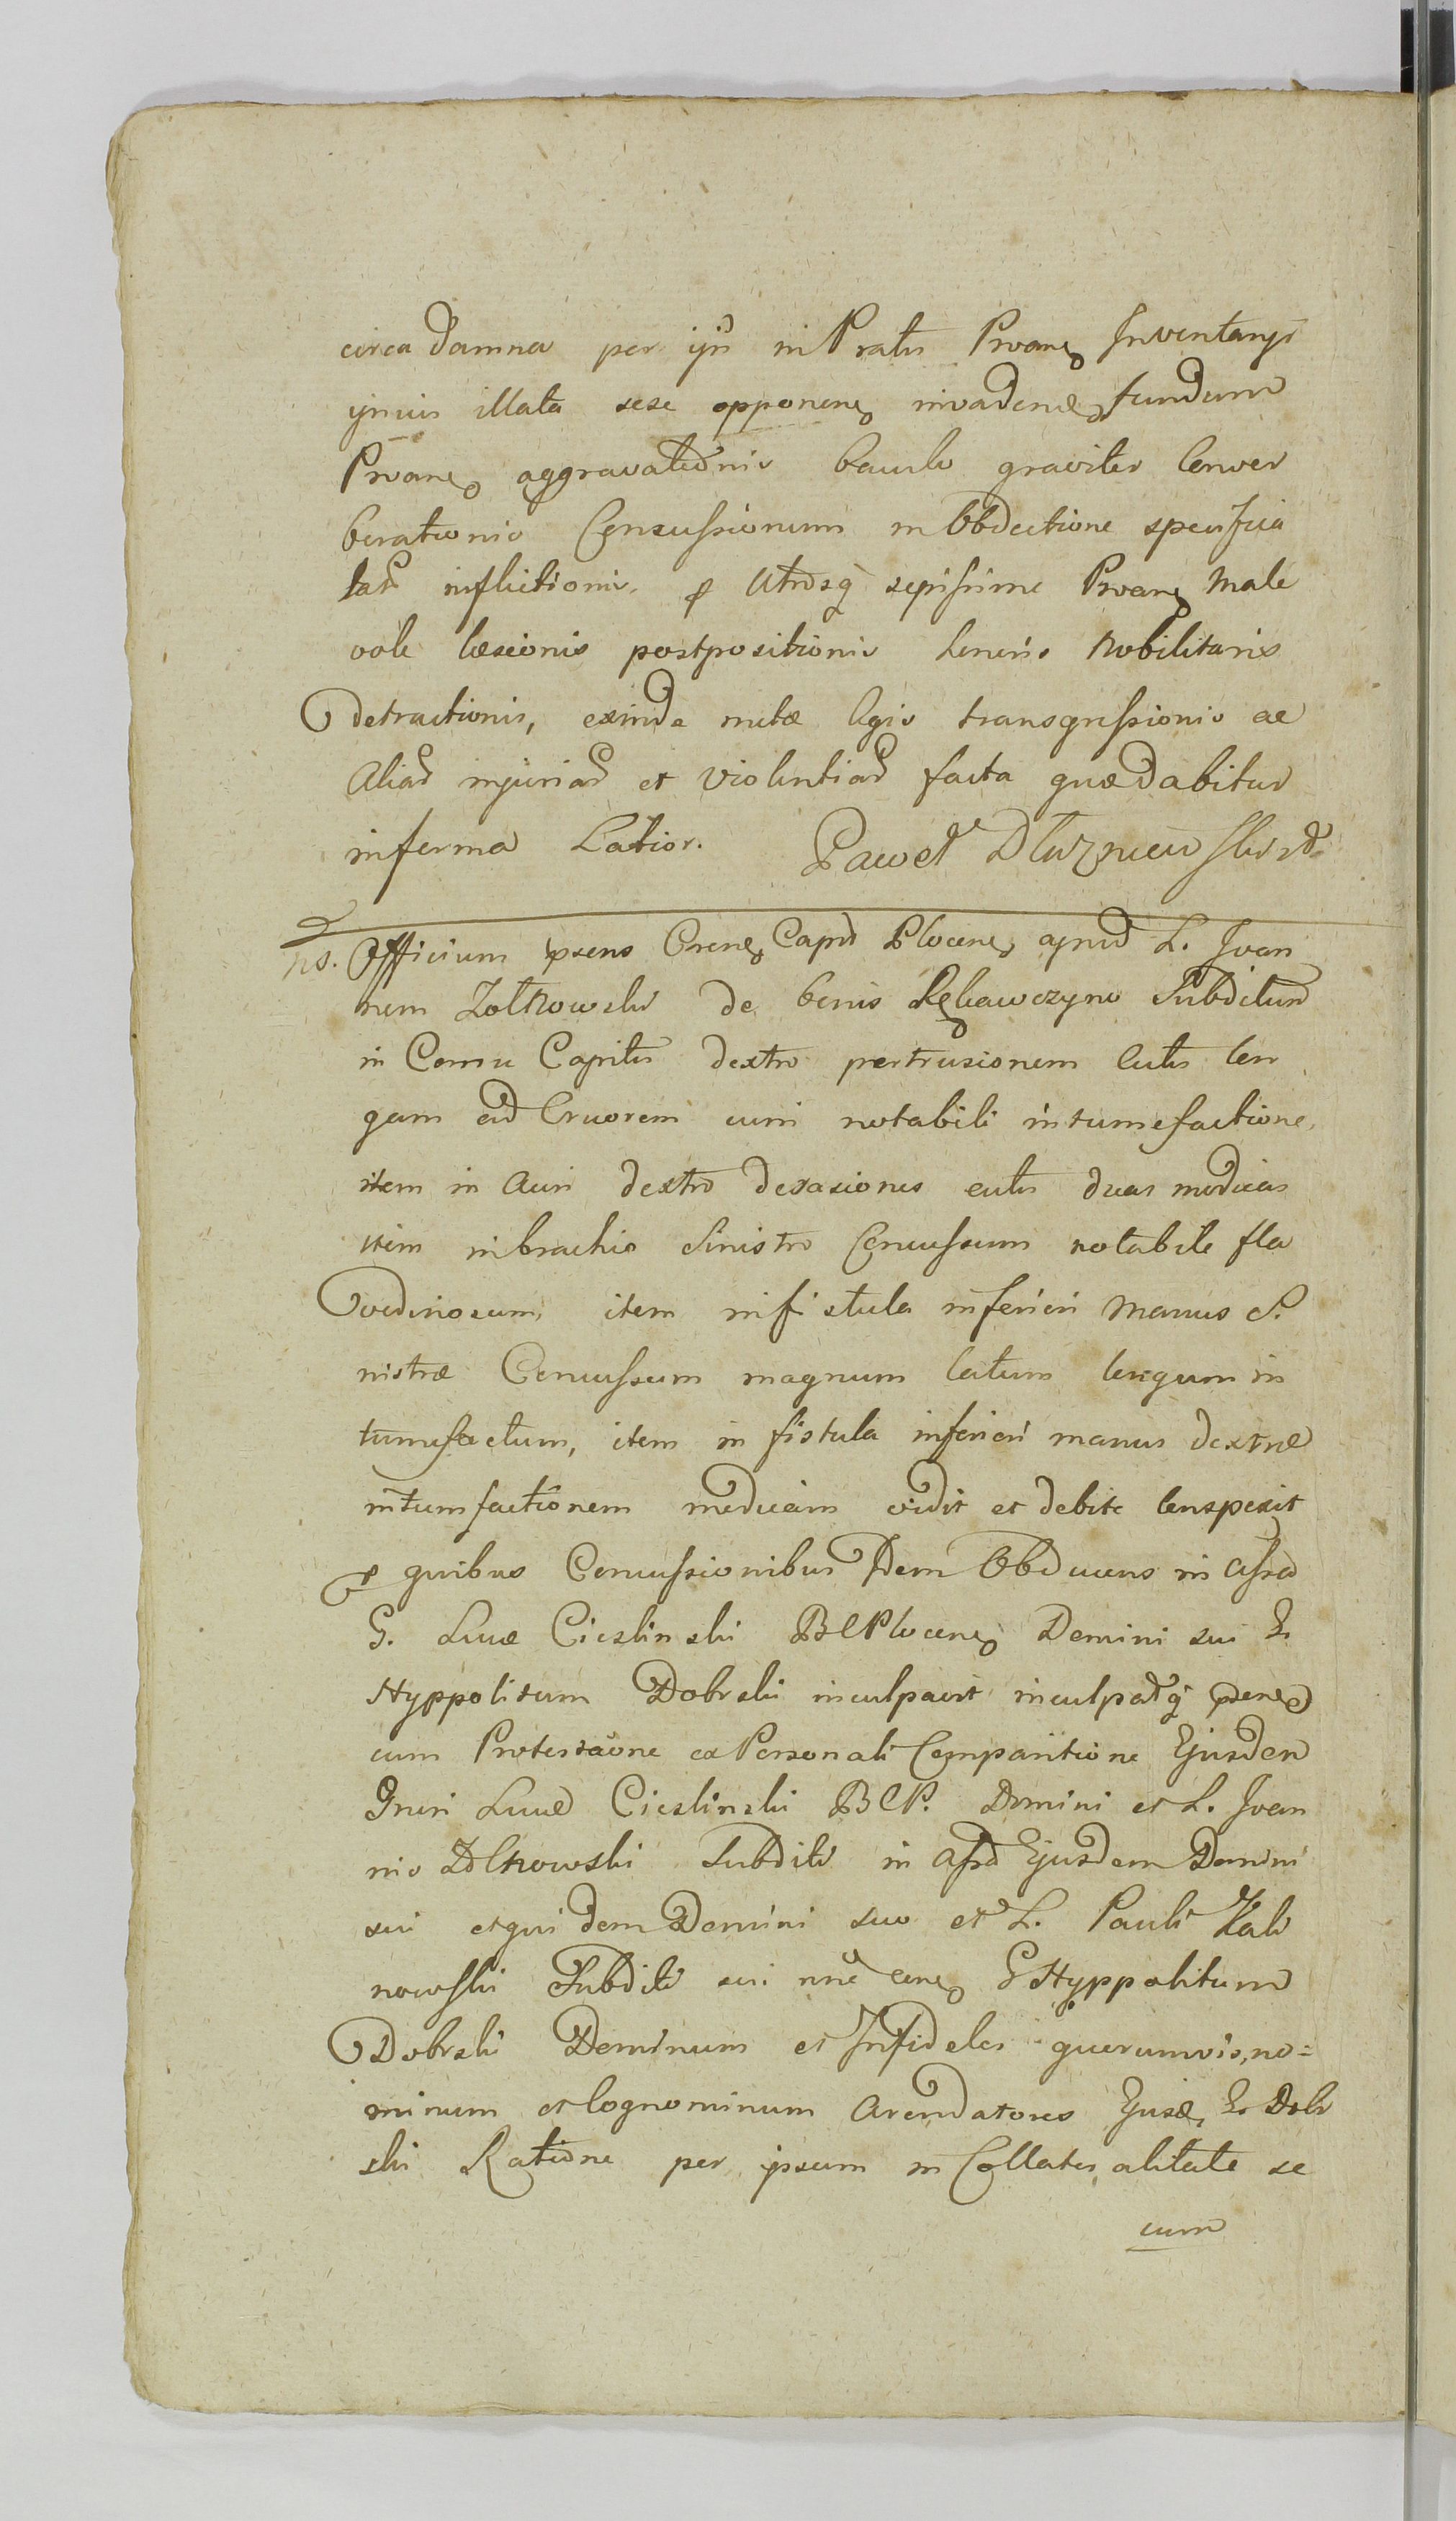 circa damna per ijs in Pratis Prvane Inventarys
ijmvis illata sese opponene invadene fundum
Prvane aggravationis baculo graviter Conver
berationis Concussionum in Obductione specifica
tas inflictionis, & utrosq sepissime Prvane Male
vole læsionis postpositionis honoris Nobilitaris
detractionis, exinde metæ legis transgressionis ac
Alias injurias et violentias facta quæ dabitur
in forma Latior. Paweł Dłuzniewski
ns. Officium psens Crene Capd Plocene apud L. Joan
nem Zołkowski de bonis Rębawczyno Subditum
in Cornu Capitis dextro pertrusionem Cutis lon
gam ad Cruorem cum notabili intumefactione,
item in Auri dextro derasiones cutis duas modicas
item in brachio Sinistro Concussum notabile fla
vedinosum, item in fistula inferiori Manus Si
nistræ Concussum magnum latum longum in
tumefactum, item in fistula inferiori manus dextræ
intumfactionem modicam vidit et debite Conspexit
& quibus Concussionibus Idem Obducens in assa
G. Lucæ Cieslinski BCPlocene Domini sui G.
Hyppolitum Dobrski inculpavit inculpatq psene
cum Protestaone ex Personali Comparitione Ejusdem
Gnrsi Lucæ Cieslinski BCP. Domini et L. Joan
nis Zolkowski Subditi in assa Ejusdem Domini
sui et qui dem Domini suo et L. Pauli Kali
nowski Subditi sui nne Cone G Hyppolitum
Dobrski Dominum et Infideles quorumvis, no=
minum et Cognominum Arendatores Ejusd, G. Dobr
ski Ratione per ipsum in Collateralitate se
cum